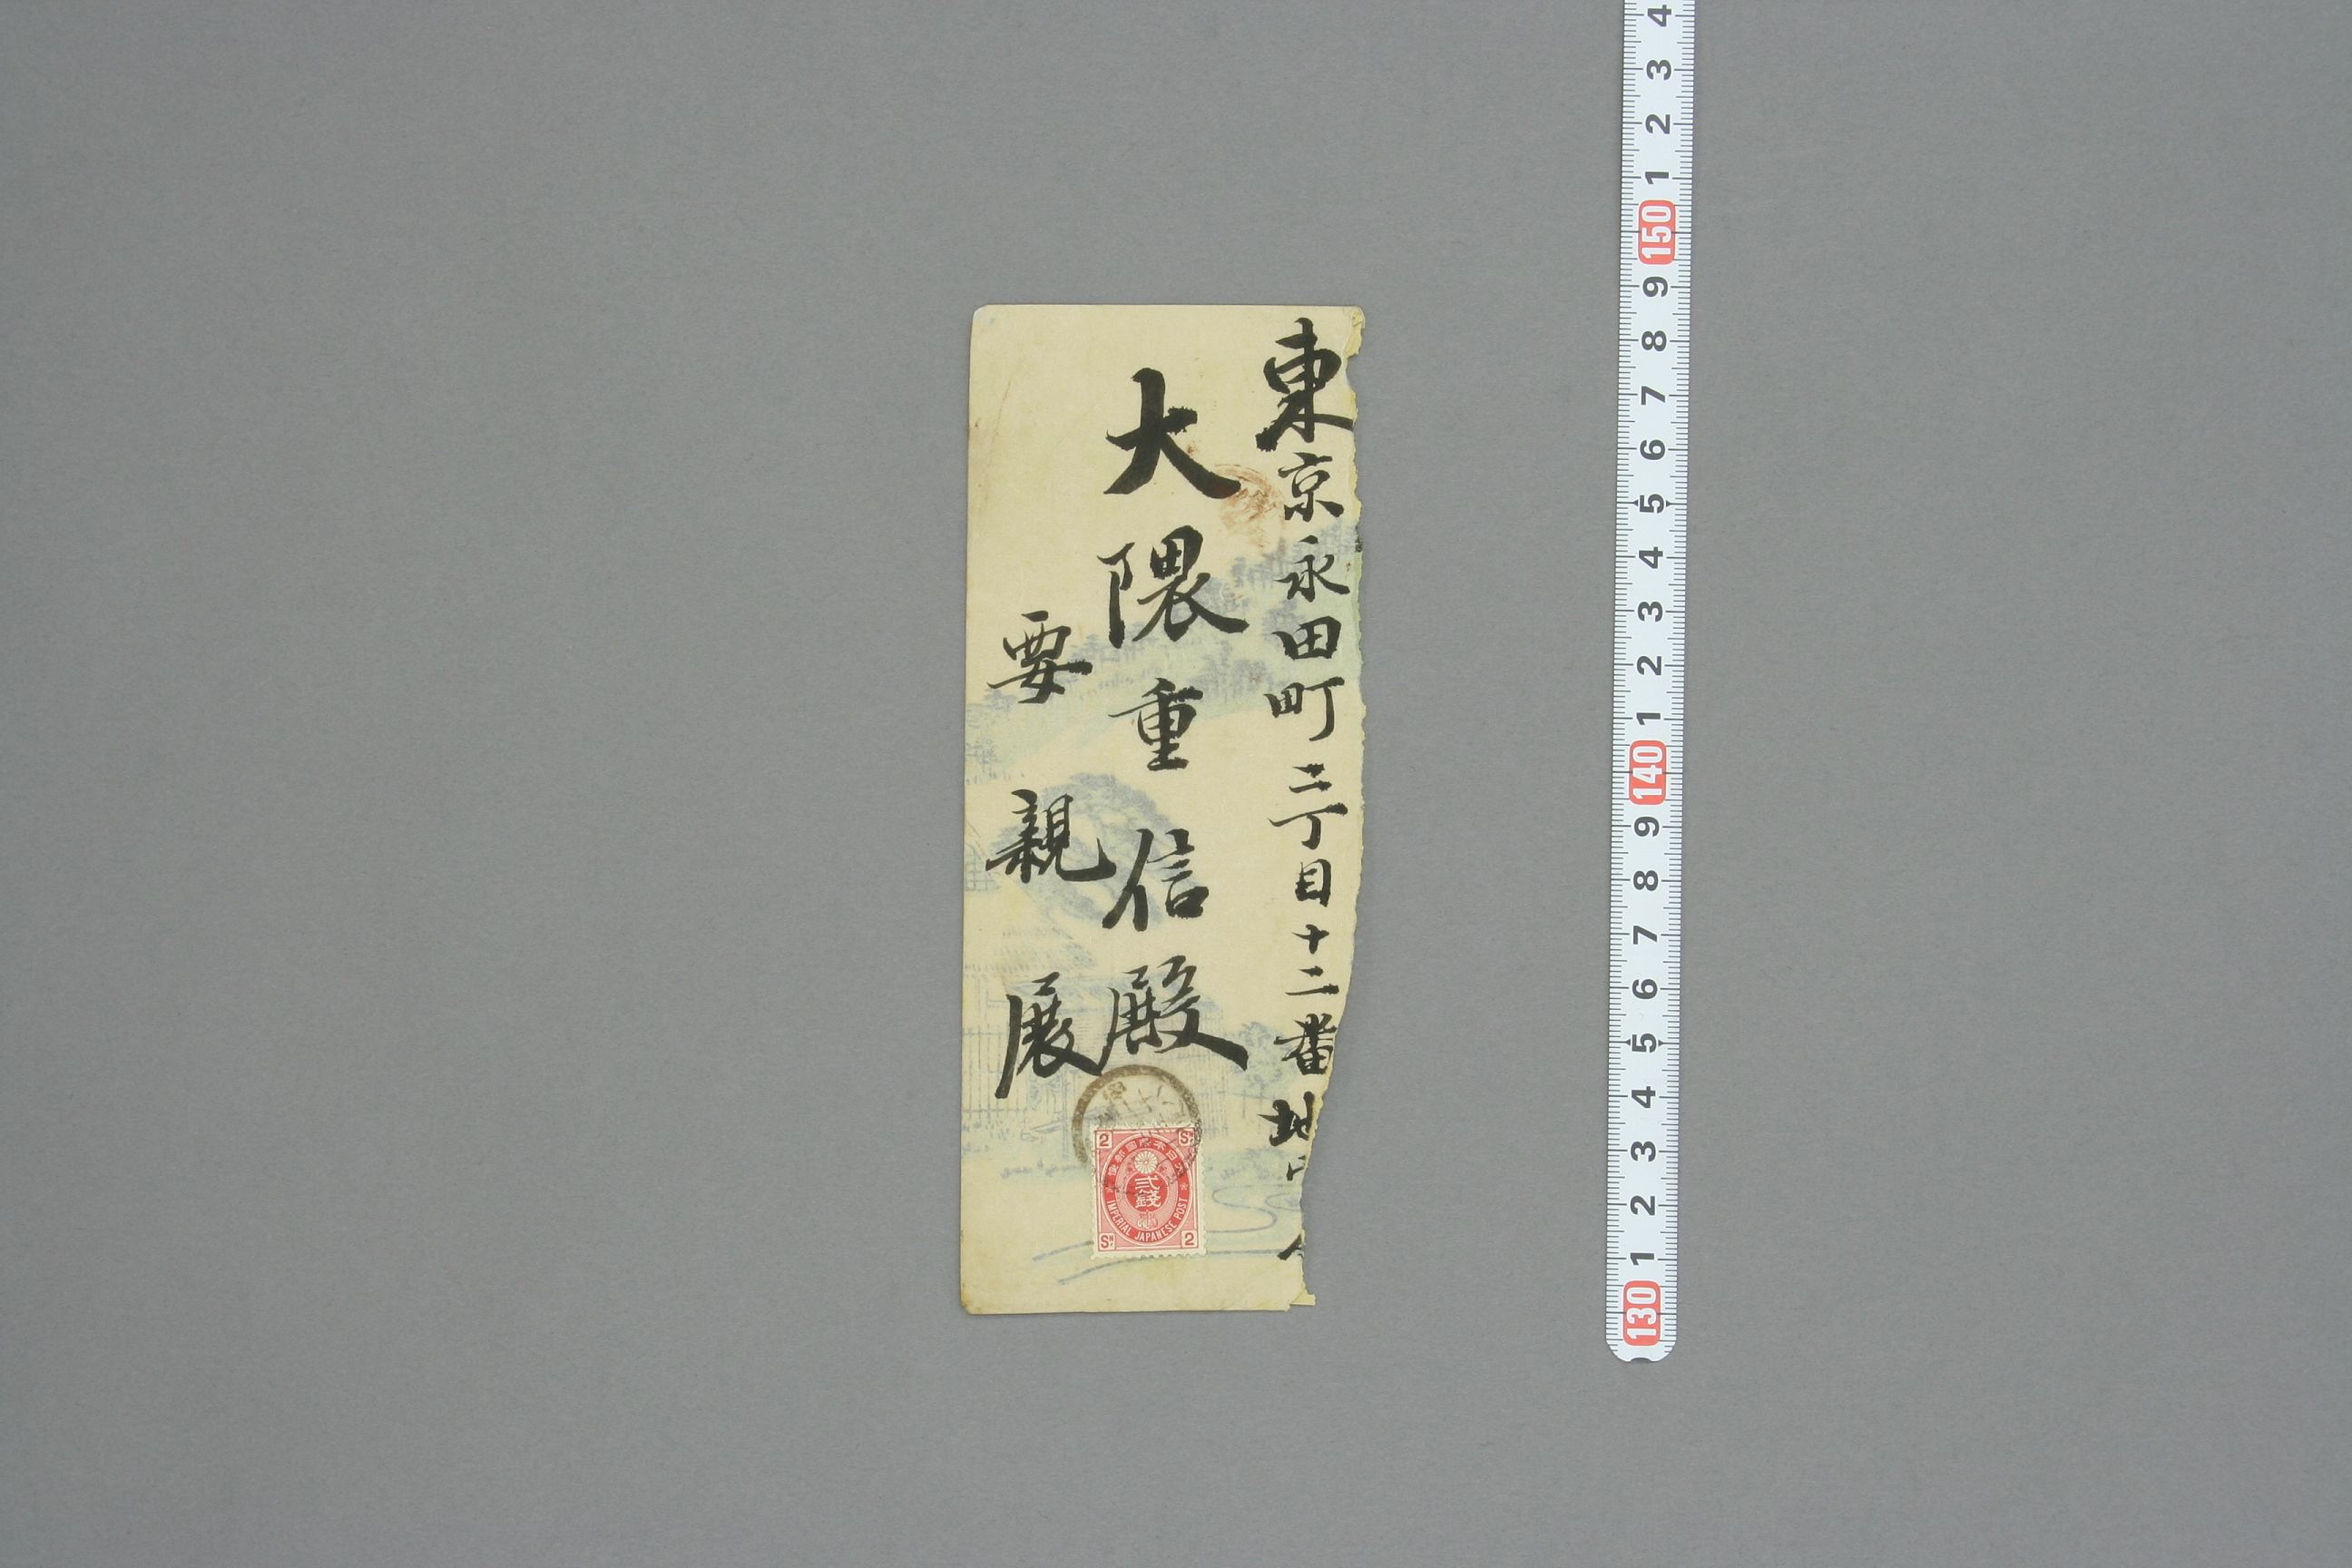 東京永田町二丁目十二番地
大隈重信殿
要親展
2 Sn
便郵國帝本日大
弐錢
IMPERIAL JAPANESE POST
Sn 2
4
3
2
1
150
9
8
7
6
5
4
3
2
1
140
9
8
7
6
5
4
3
2
1
130